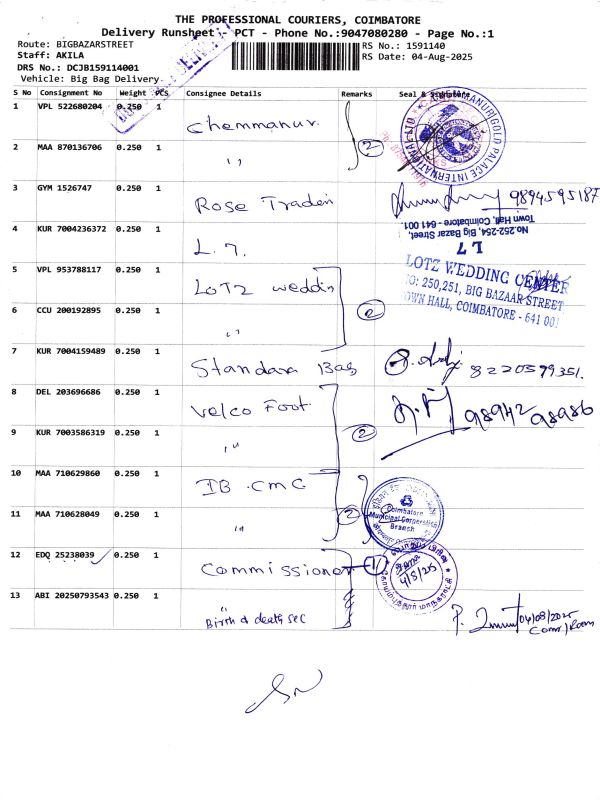 THE PROFESSIONAL COURIERS, COIMBATORE
Delivery Runsheet - PCT - Phone No.:9047080280 - Page No.:1
Route: BIGBAZARSTREET
RS No.: 1591140
Staff: AKILA
RS Date: 04-Aug-2025
DRS No.: DCJB159114001
Vehicle: Big Bag Delivery
S No Consignment No Weight PCS Consignee Details Remarks Seal &
1 VPL 522680204 0.250 1 Chemmanur
2 MAA 870136706 0.250 1 ,, 2
3 GYM 1526747 0.250 1 Rose Traden 9894595187
4 KUR 7004236372 0.250 1 L.7.
L 7
No.252-254, Big Bazaar Street,
Town Hall, Coimbatore - 641 001.
5 VPL 953788117 0.250 1 LOTZ weddin
LOTZ WEDDING CENTER
NO: 250,251, BIG BAZAAR STREET
TOWN HALL, COIMBATORE - 641 001
6 CCU 200192895 0.250 1 ,, 2
7 KUR 7004159489 0.250 1 Standara Bag 8220579351.
8 DEL 203696686 0.250 1 Velco Foot 98942 98986
9 KUR 7003586319 0.250 1 ,, 2
10 MAA 710629860 0.250 1 IB .CMC
11 MAA 710628049 0.250 1 ,, 2
Coimbatore
Municipal Corporation
Branch
12 EDQ 25238039 0.250 1 Commissioner
4/8/25
13 ABI 20250793543 0.250 1 ,,
Birth & death sec
04/08/2025